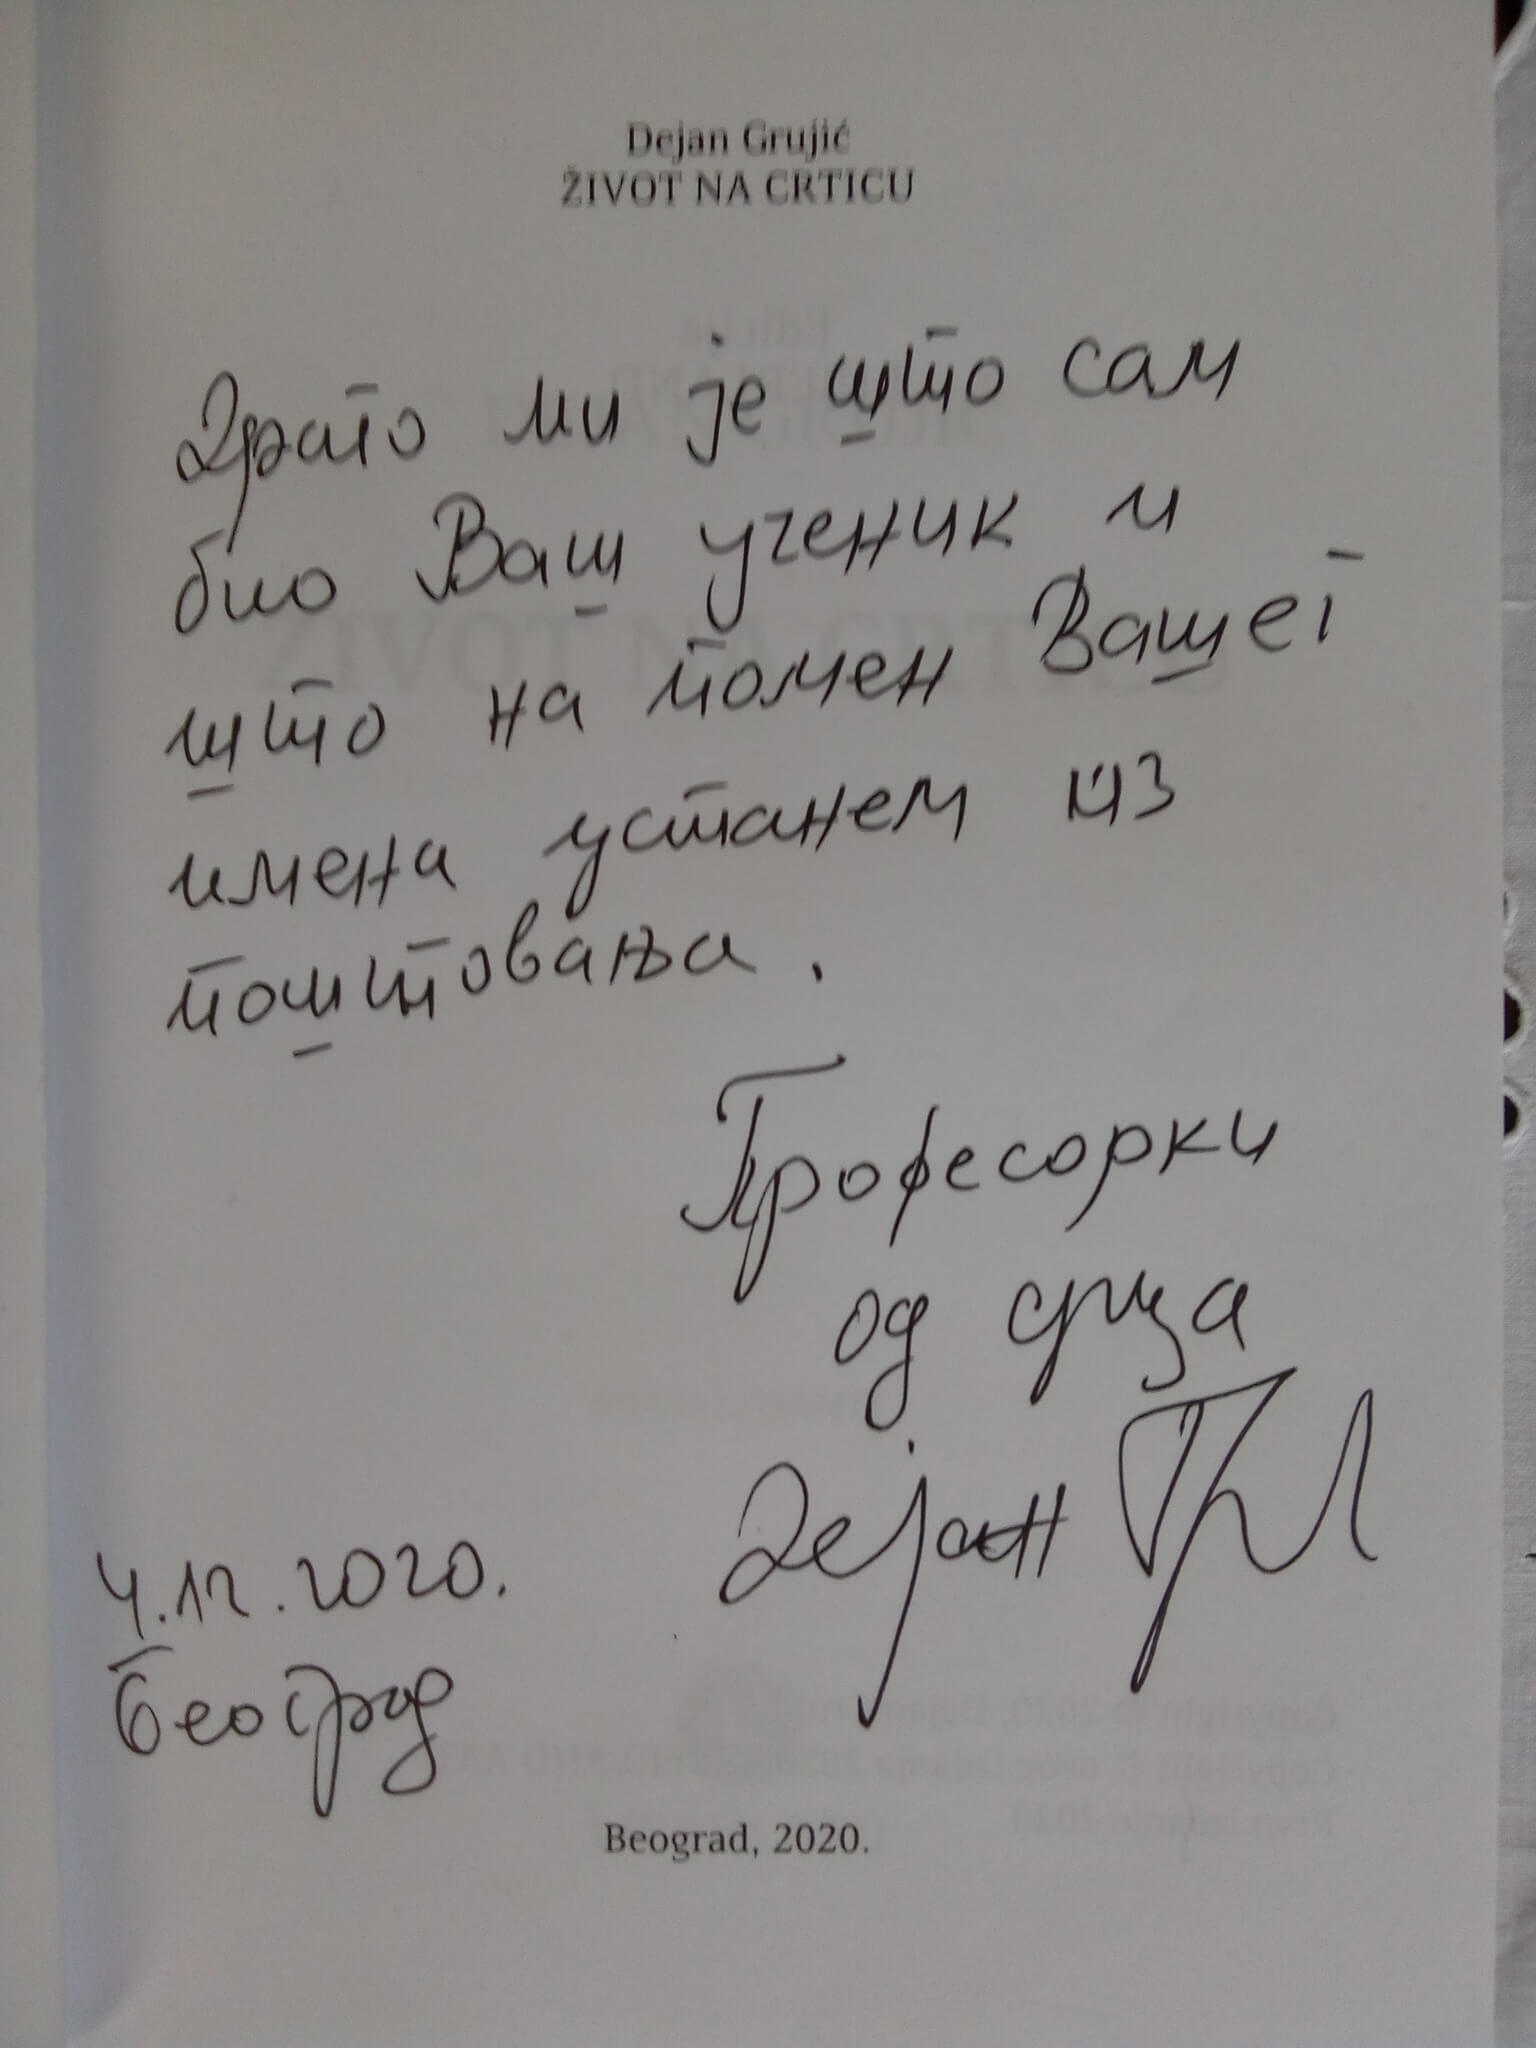 Dejan Grujić
ŽIVOT NA CRTICU
Драго ми је што сам
био Ваш ученик и
што на помен Вашег
имена устанем из
поштовања.
Професорки
од срца
Дејан
4.12.2020.
Београд
Beograd, 2020.